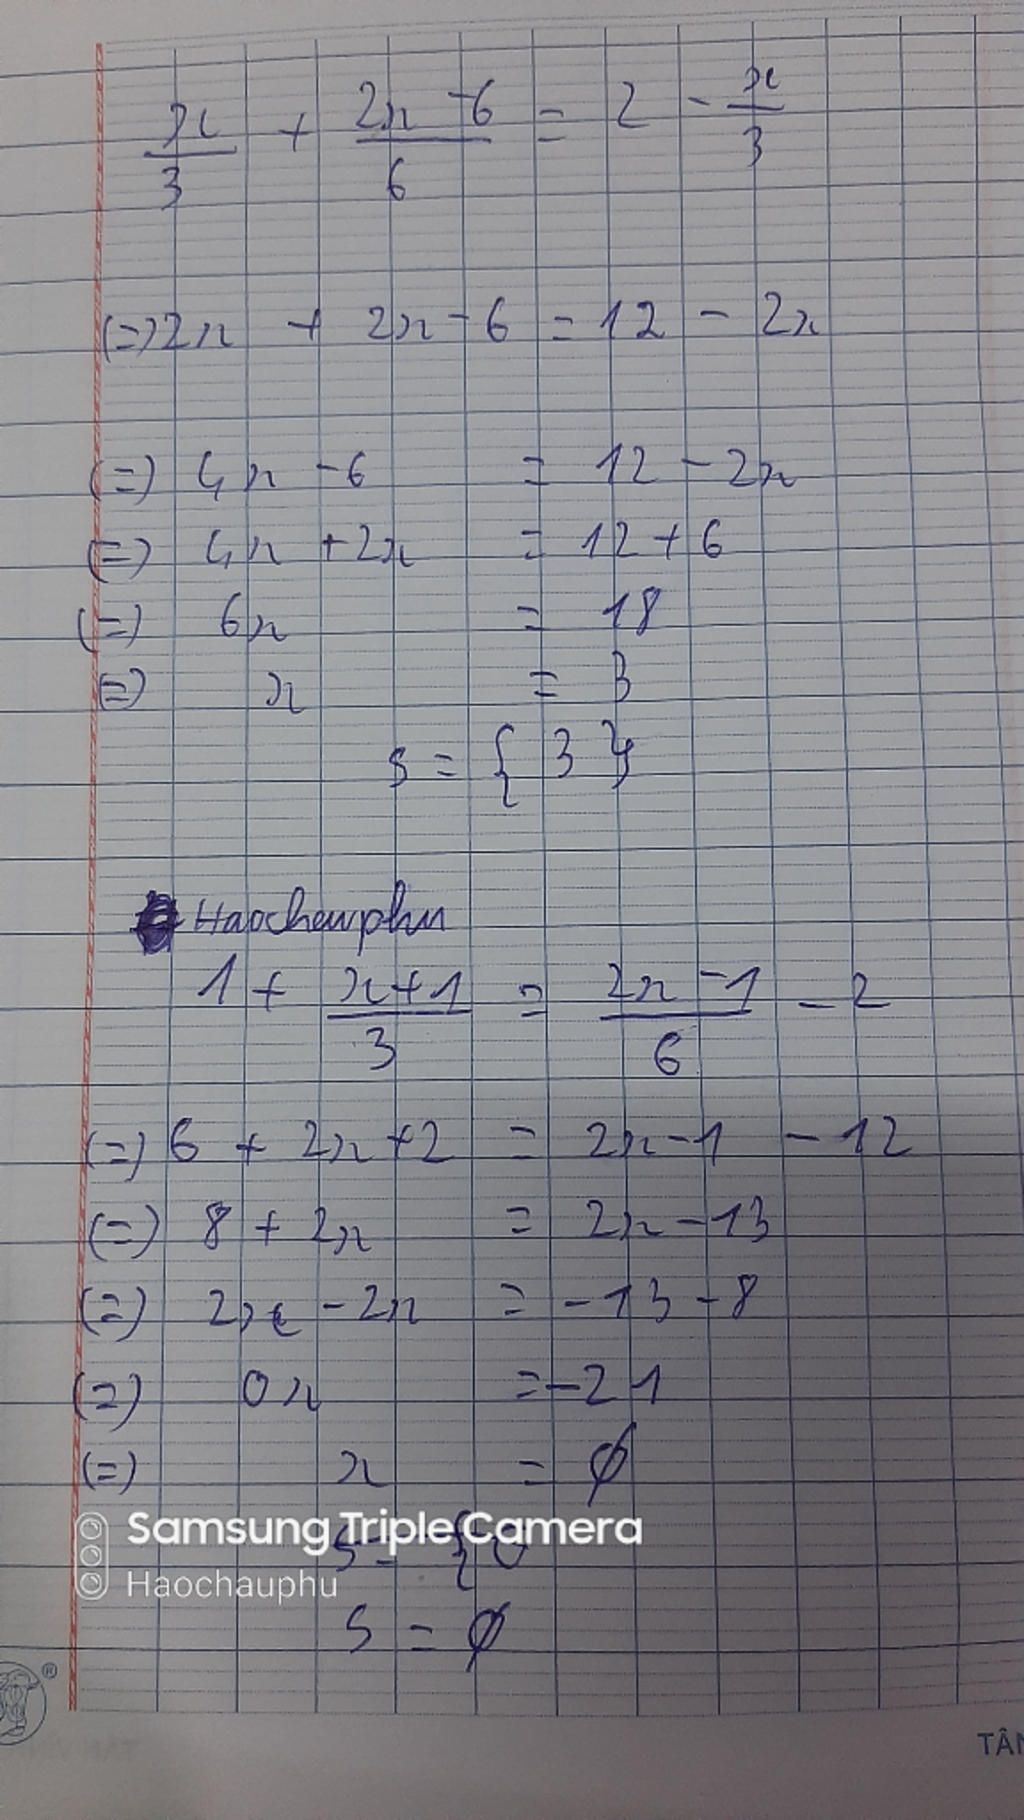 x/3 + 2x-6/6 = 2 - x/3
(=) 2x + 2x - 6 = 12 - 2x
(=) 4x - 6 = 12 - 2x
(=) 4x + 2x = 12 + 6
(=) 6x = 18
(=) x = 3
S = { 3 }
Haochauphu
1 + x+1/3 = 2x-1/6 - 2
(=) 6 + 2x + 2 = 2x - 1 - 12
(=) 8 + 2x = 2x - 13
(=) 2x - 2x = -13 - 8
(=) 0x = -21
(=) x = ∅
Samsung Triple Camera
S = { 0
Haochauphu
S = ∅
®
TÂN